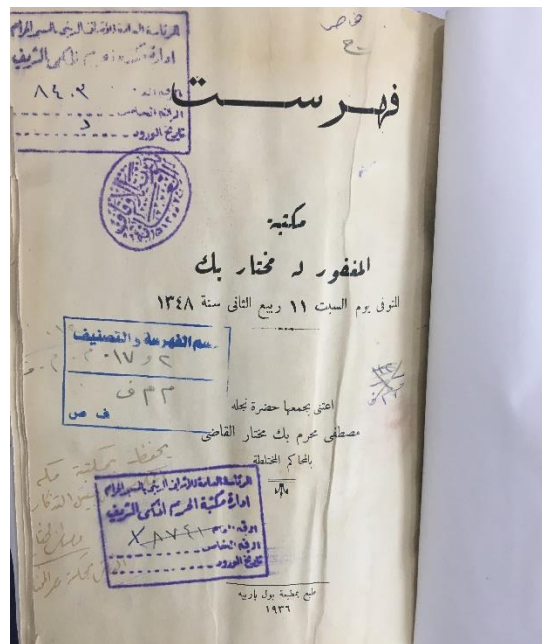 خاص
الرئاسة العامة للإشراف الديني بالمسجد الحرام
ادارة مكتبة الحرم المكي الشريف
الرقم العام ٨٤٠٣
الرقم الخاص
تاريخ الورود
فهرست
مكتبة
المغفور له مختار بك
المتوفى يوم السبت ١١ ربيع الثانى سنة ١٣٤٨
قسم الفهرسة والتصنيف
٠١٧ و ٢
م م ف
ف ص
اعتنى بجمعها حضرة نجله
مصطفى محرم بك مختار القاضى
بالمحاكم المختلطة
يحفظ بمكتبة مكة
الرئاسة العامة للإشراف الديني بالمسجد الحرام
ادارة مكتبة الحرم المكي الشريف
الرقم العام ٨٧٤١
الرقم الخاص
تاريخ الورود
طبع بمطبعة بول باربيه
١٩٣٦